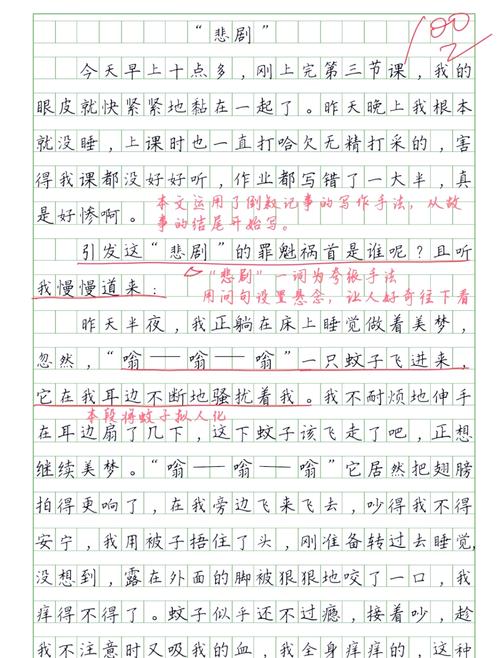 “悲剧”
100
今天早上十点多，刚上完第三节课，我的
眼皮就快紧紧地黏在一起了。昨天晚上我根本
就没睡，上课时也一直打哈欠无精打采的，害
得我课都没好好听，作业都写错了一大半，真
是好惨啊。
本文运用了倒叙记事的写作手法，从故
事的结尾开始写。
引发这“悲剧”的罪魁祸首是谁呢？且听
我慢慢道来：
“悲剧”一词为夸张手法
用问句设置悬念，让人好奇往下看
昨天半夜，我正躺在床上睡觉做着美梦，
忽然，“嗡——嗡——嗡”一只蚊子飞进来，
它在我耳边不断地骚扰着我。我不耐烦地伸手
本段将蚊子拟人化
在耳边扇了几下，这下蚊子该飞走了吧，正想
继续美梦。“嗡——嗡——嗡”它居然把翅膀
拍得更响了，在我旁边飞来飞去，吵得我不得
安宁，我用被子捂住了头，刚准备转过去睡觉，
没想到，露在外面的脚被狠狠地咬了一口，我
痒得不得了。蚊子似乎还不过瘾，接着吵，趁
我不注意时又吸我的血，我全身痒痒的，这种